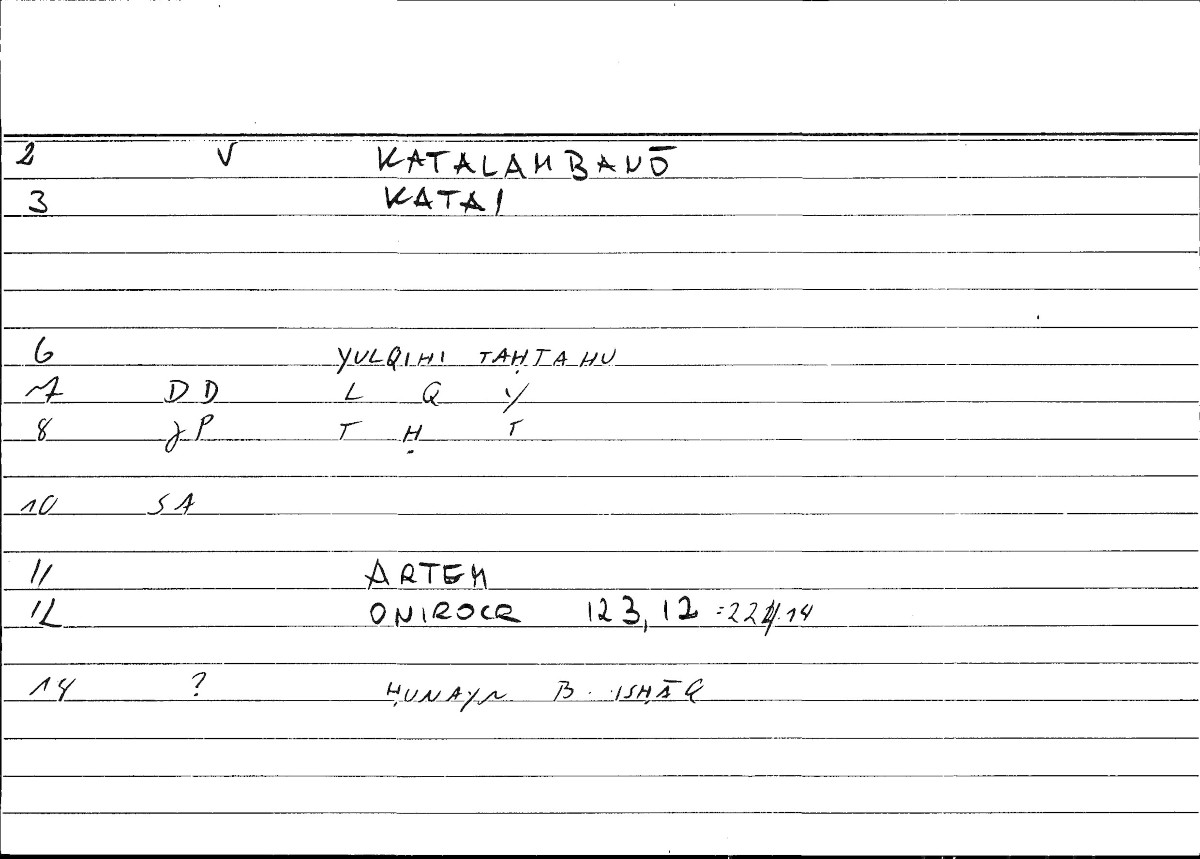 2 V KATALAMBANŌ
3 KATAI
6 YULQIHI TAḤTAHU
7 DD L Q Y
8 JP T Ḥ T
10 SA
11 ARTEM
12 ONIROCR 123,12
14 ? ḤUNAYN B. ISḤĀQ